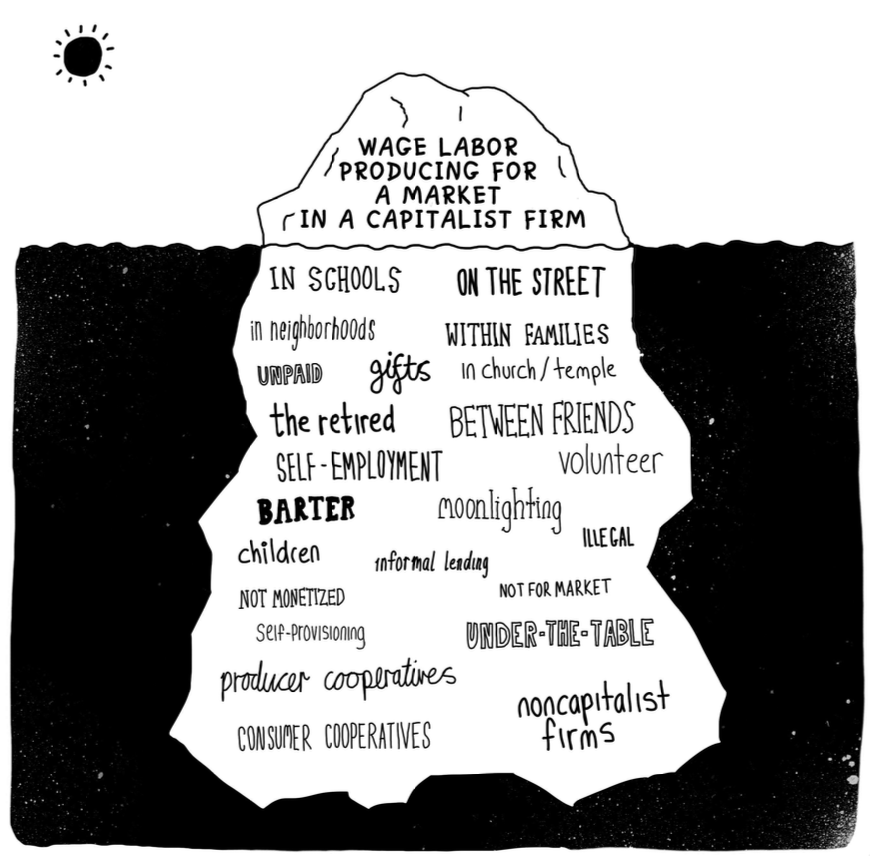 WAGE LABOR
PRODUCING FOR
A MARKET
IN A CAPITALIST FIRM
IN SCHOOLS
ON THE STREET
in neighborhoods
WITHIN FAMILIES
UNPAID
gifts
in church/temple
the retired
BETWEEN FRIENDS
SELF-EMPLOYMENT
volunteer
BARTER
moonlighting
ILLEGAL
children
informal lending
NOT MONETIZED
NOT FOR MARKET
Self-Provisioning
UNDER-THE-TABLE
producer cooperatives
noncapitalist
firms
CONSUMER COOPERATIVES